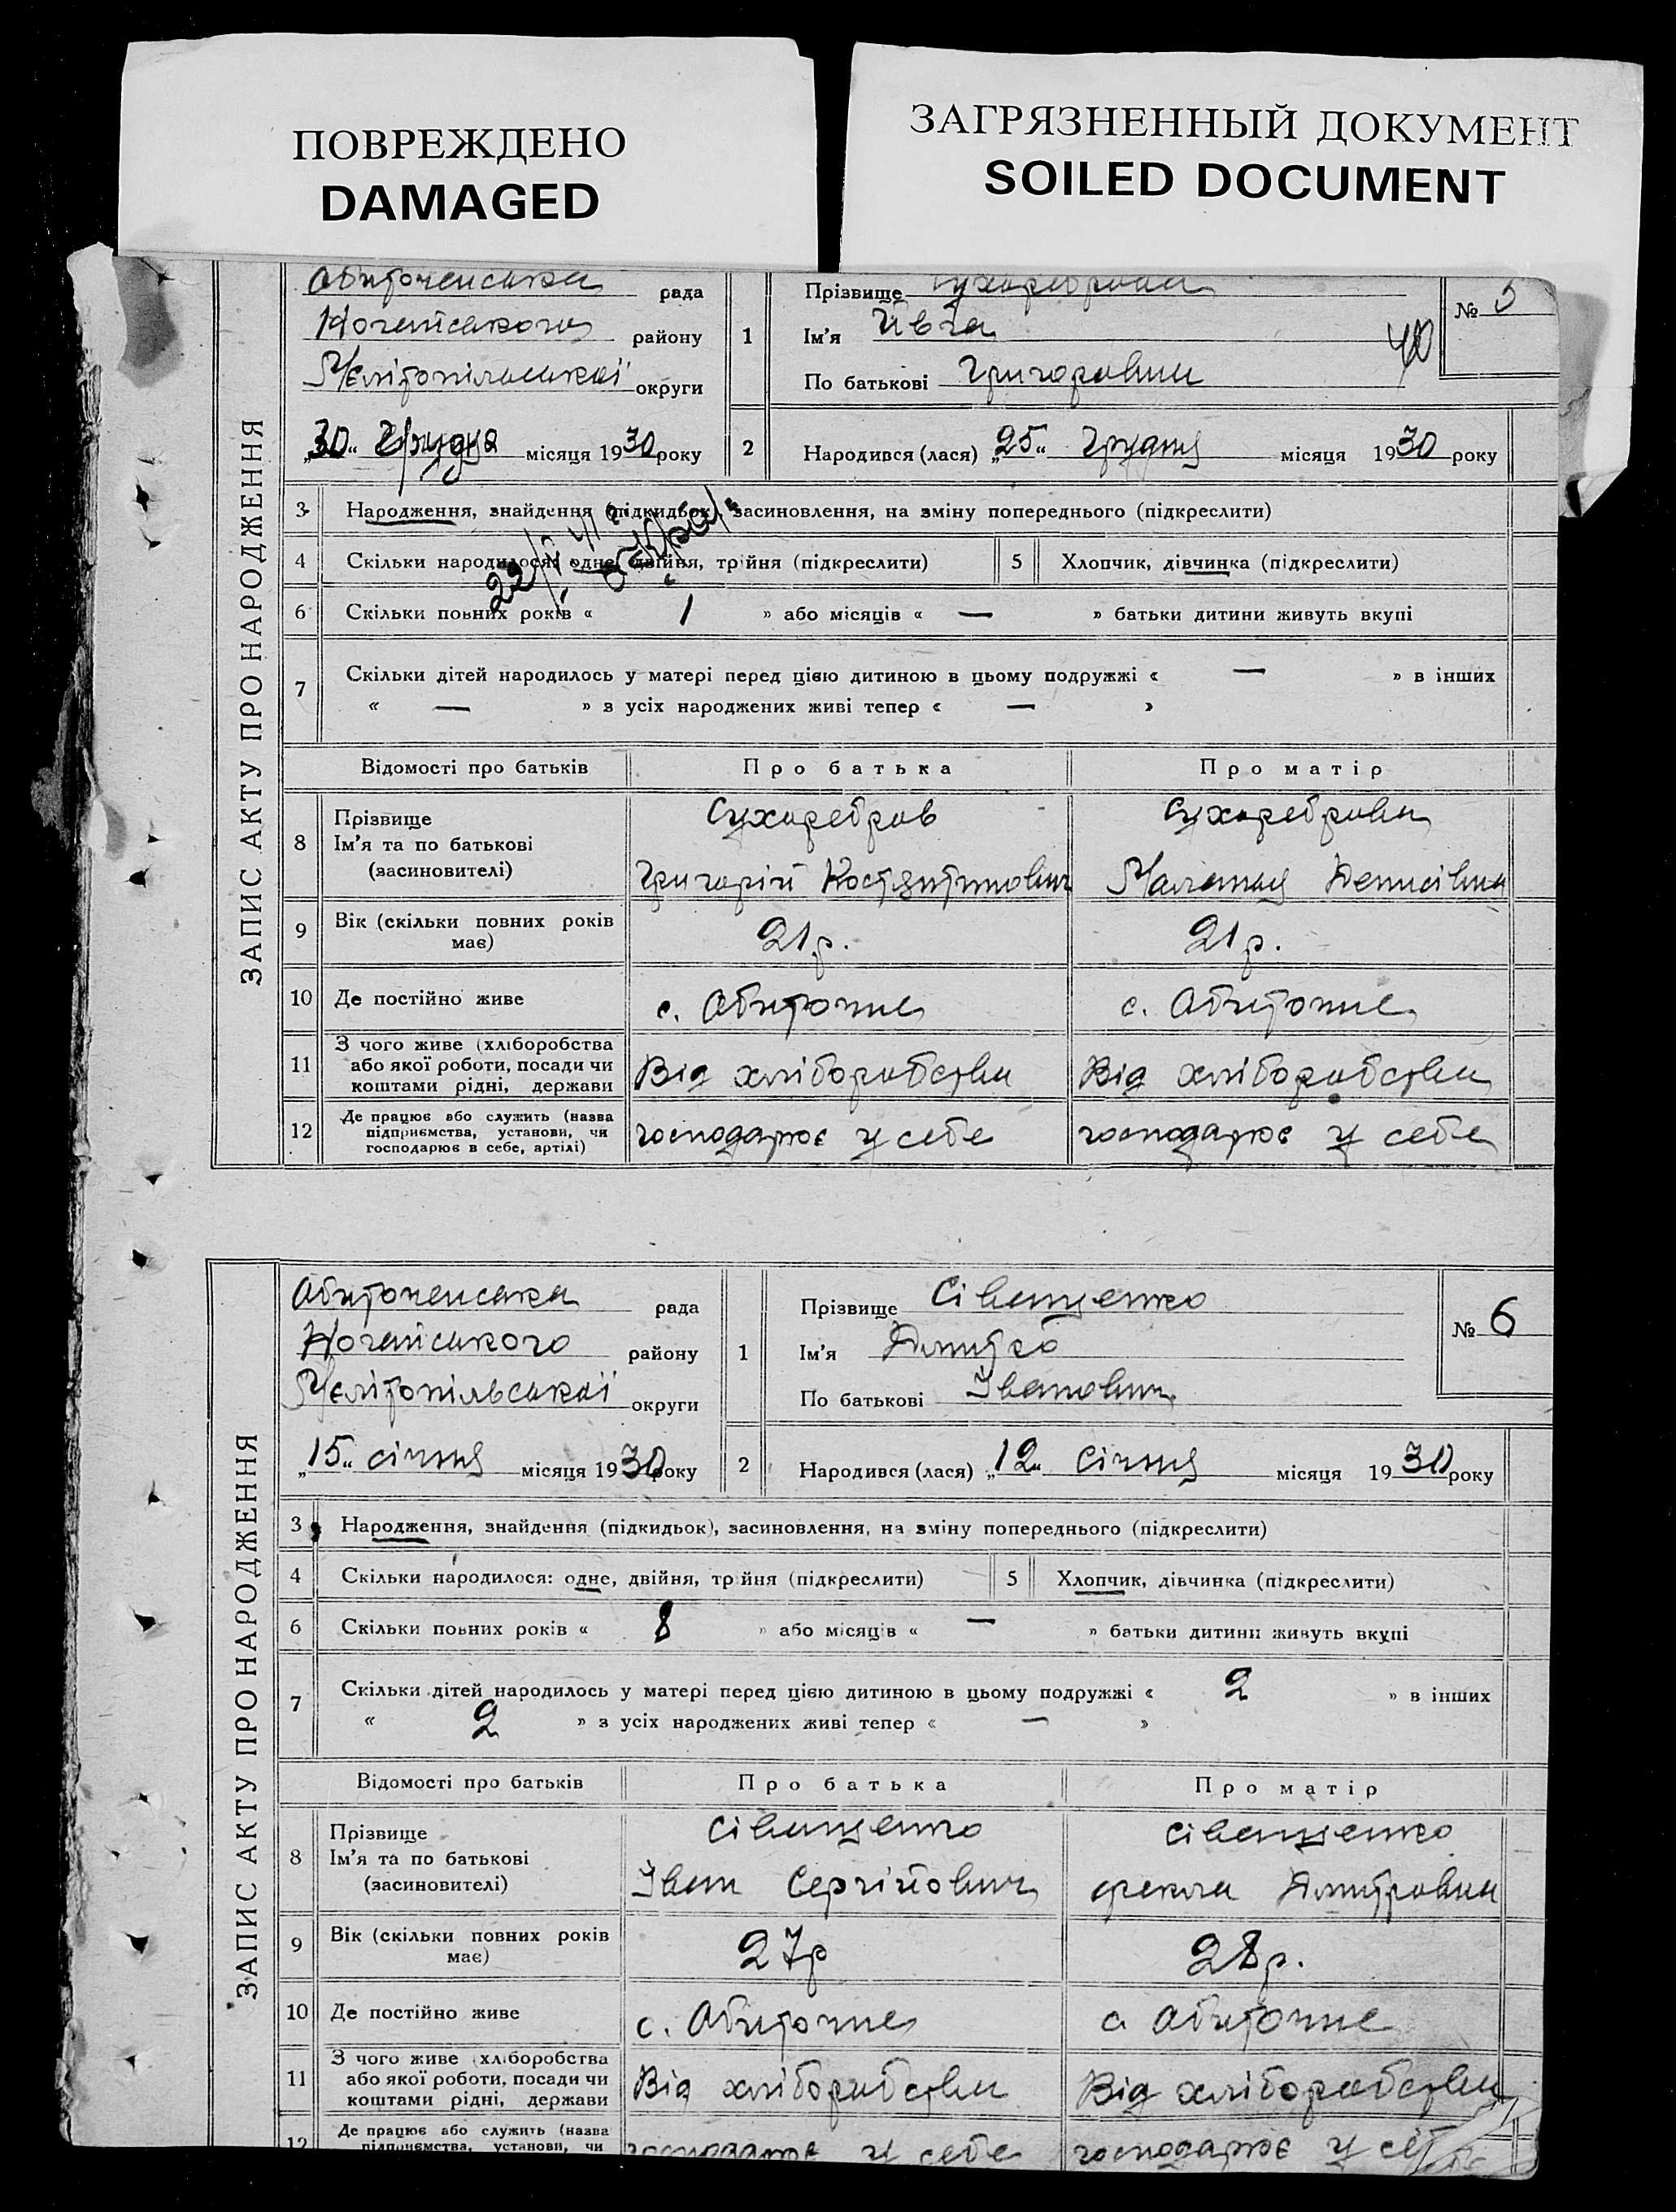 ПОВРЕЖДЕНО
DAMAGED
ЗАГРЯЗНЕННЫЙ ДОКУМЕНТ
SOILED DOCUMENT
ЗАПИС АКТУ ПРО НАРОДЖЕННЯ
Обиточенська рада
Ногайського району
Мелітопільської округи
„30“ Грудня місяця 1930 року
1 Прізвище Сухореброва
Ім'я Ивга
По батькові Григоровна
40
№ 5
2 Народився (лася) „25“ грудня місяця 1930 року
3 Народження, знайдення (підкидьок), засиновлення, на зміну попереднього (підкреслити)
4 Скільки народилося: одне, двійня, трійня (підкреслити) 5 Хлопчик, дівчинка (підкреслити)
6 Скільки повних років « 1 » або місяців « — » батьки дитини живуть вкупі
7 Скільки дітей народилось у матері перед цією дитиною в цьому подружжі « — » в інших
« — » з усіх народжених живі тепер « — »
Відомості про батьків Про батька Про матір
8 Прізвище Сухоребров Сухореброва
Ім'я та по батькові
(засиновителі) Григорій Костянтинович Маланья Денисівна
9 Вік (скільки повних років має) 21 р. 21 р.
10 Де постійно живе с. Обиточне с. Обиточне
11 З чого живе (хліборобства
або якої роботи, посади чи
коштами рідні, держави Від хліборобства Від хліборобства
12 Де працює або служить (назва
підприємства, установи, чи
господарює в себе, артілі) господарює у себе господарює у себе
ЗАПИС АКТУ ПРО НАРОДЖЕННЯ
Обиточенська рада
Ногайського району
Мелітопільської округи
„15“ січня місяця 1930 року
1 Прізвище Сіващенко
Ім'я Дмитро
По батькові Іванович
№ 6
2 Народився (лася) „12“ Січня місяця 1930 року
3 Народження, знайдення (підкидьок), засиновлення, на зміну попереднього (підкреслити)
4 Скільки народилося: одне, двійня, трійня (підкреслити) 5 Хлопчик, дівчинка (підкреслити)
6 Скільки повних років « 8 » або місяців « — » батьки дитини живуть вкупі
7 Скільки дітей народилось у матері перед цією дитиною в цьому подружжі « 2 » в інших
« 2 » з усіх народжених живі тепер « — »
Відомості про батьків Про батька Про матір
8 Прізвище Сіващенко Сіващенко
Ім'я та по батькові
(засиновителі) Іван Сергійович Фекла Дмитровна
9 Вік (скільки повних років має) 27 р 28 р.
10 Де постійно живе с. Обиточне с. Обиточне
11 З чого живе (хліборобства
або якої роботи, посади чи
коштами рідні, держави Від хліборобства Від хліборобства
12 Де працює або служить (назва
підприємства, установи, чи господарює у себе господарює у себе